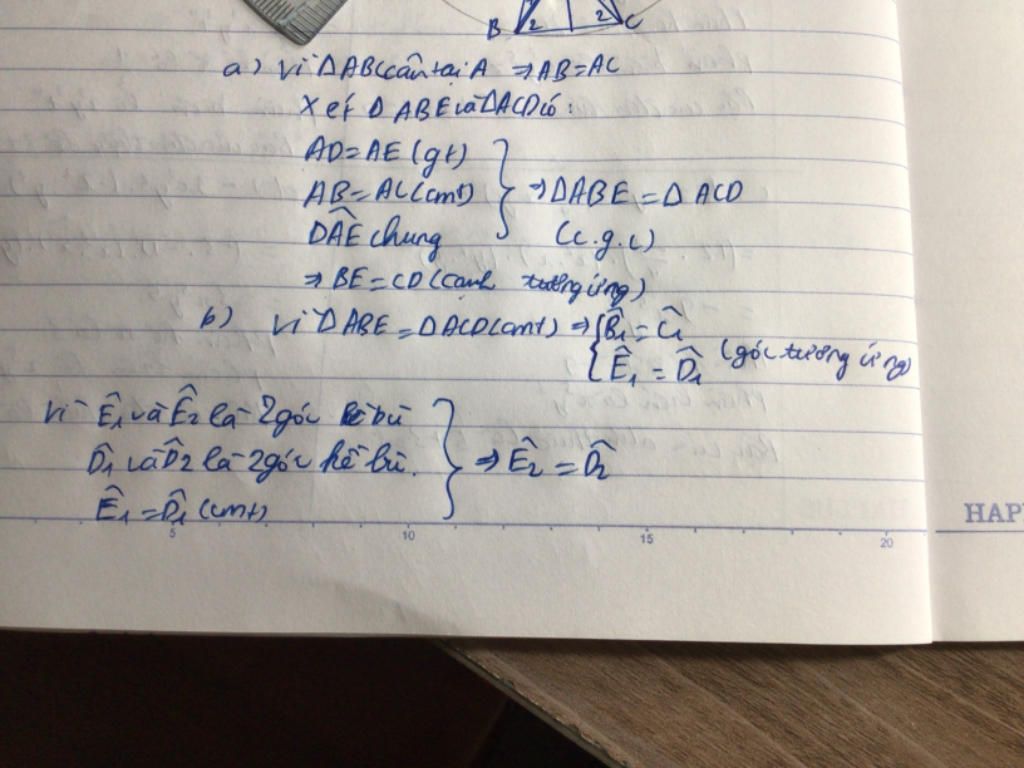 B 2 2 C
a) Vì ΔABC cân tại A ⇒ AB=AC
Xét ΔABE và ΔACD có:
AD=AE (gt)
AB=AC (cmt) } ⇒ ΔABE = ΔACD
D̂AE chung (c.g.c)
⇒ BE=CD (cạnh tương ứng)
b) Vì ΔABE = ΔACD (cmt) ⇒ { B̂1 = Ĉ1
Ê1 = D̂1 (góc tương ứng)
Vì Ê1 và Ê2 là 2 góc kề bù
D̂1 và D̂2 là 2 góc kề bù. } ⇒ Ê2 = D̂2
Ê1 = D̂1 (cmt)
5 10 15 20
HAPP